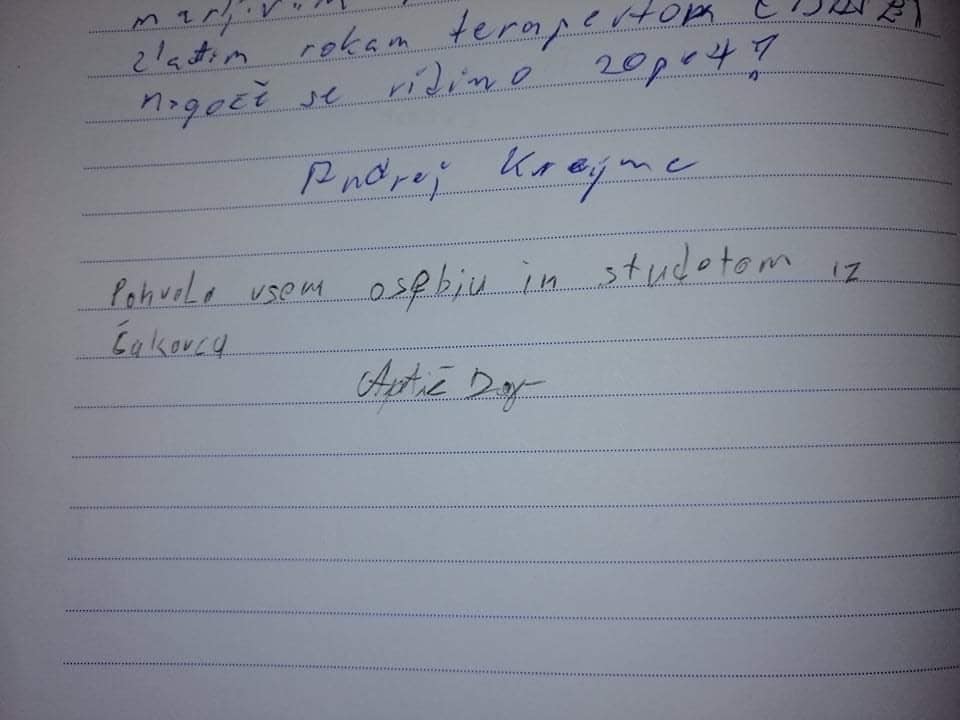 zlatim rokam terapevtom
mogoče se vidimo zopet?
Andrej Krajnc
Pohvala vsem osebju in studotom iz
Čakovca
Antič